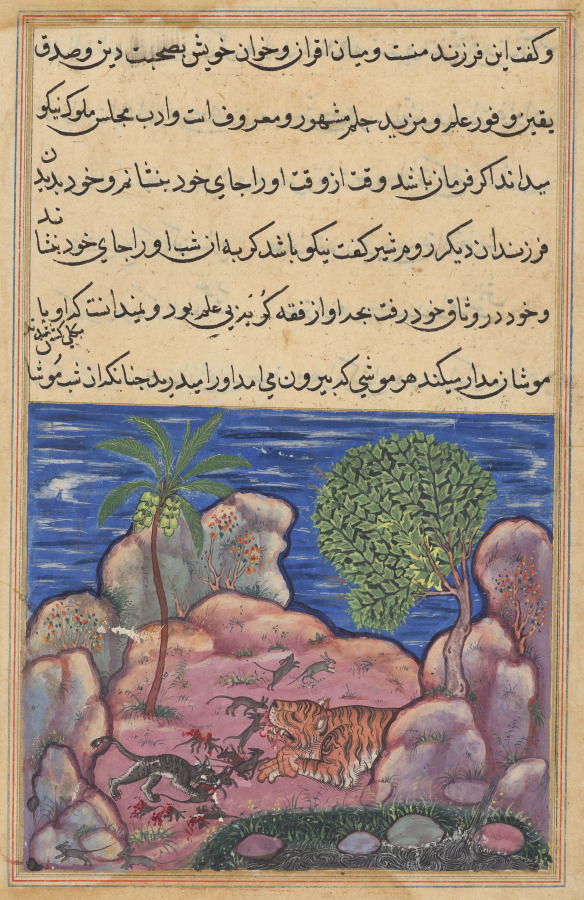 و کفت این فرزند منست و میان اقران و خوان خویش بصحبت دین و صدق
یقین و فور علم و مزید حلم مشهور و معروف است و ادب مجلس ملوک نیکو
میداند اکر فرمان باشد وقت از وقت او را جای خود بنشانم و خود بدیدن
فرزندان دیکر روم شیر کفت نیکو باشد کربه از شب او را جای خود بنشاند
و خود در وثاق خود رفت بچه او از فقه کربه بی علم بود و نمیدانست که او با
موشان مدارا میکند هر موشی که بیرون می امد او را میدرید چنانکه ان شب موشان